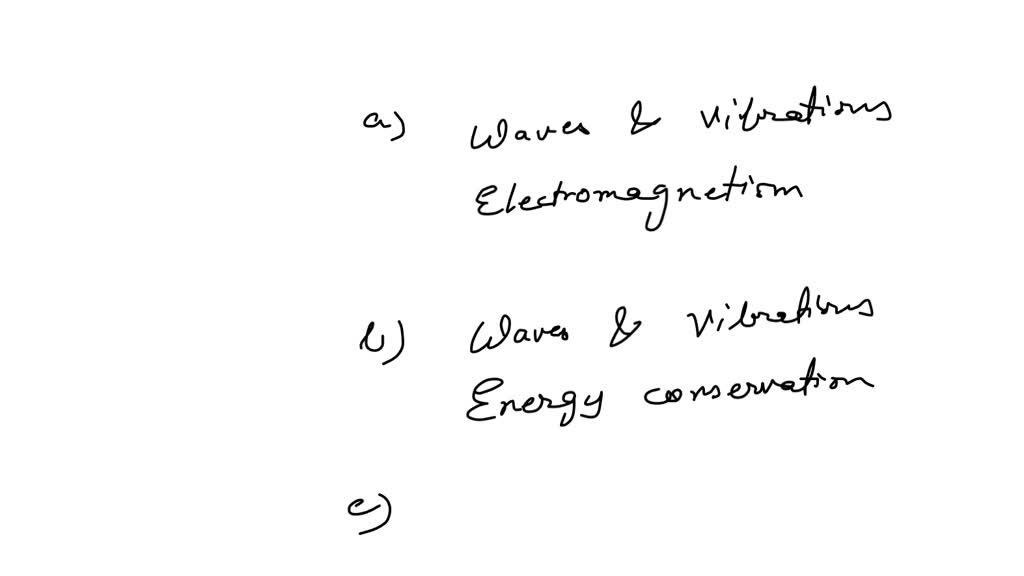 a) Waves & vibrations
Electromagnetism
b) Waves & vibrations
Energy conservation
c)